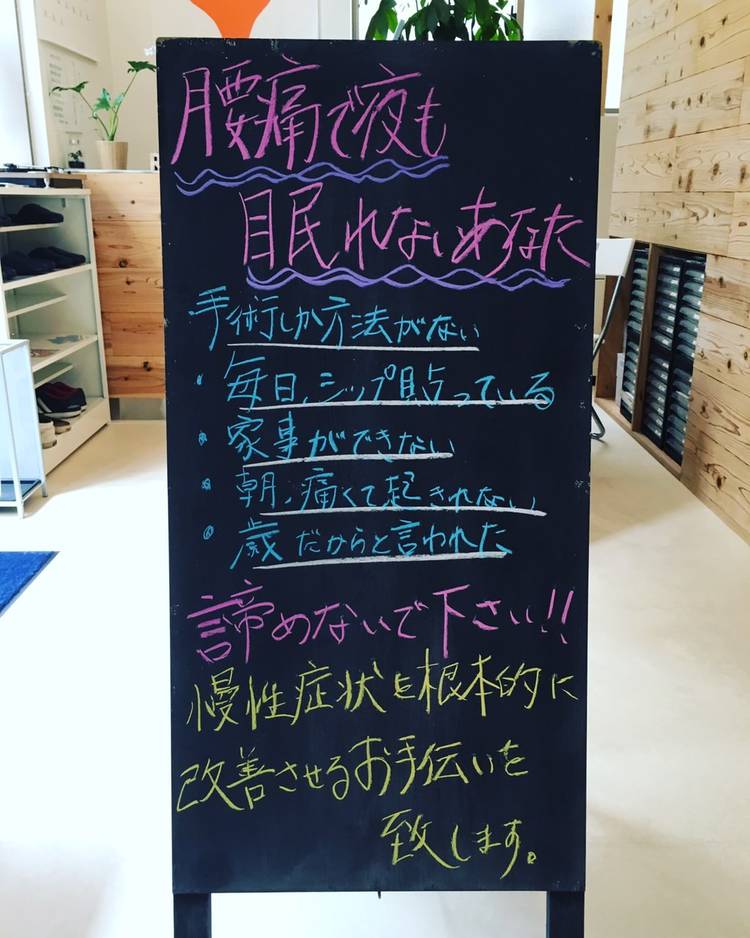 腰痛で夜も
眠れないあなた
手術しか方法がない
・毎日、シップ貼っている
・家事ができない
・朝、痛くて起きれない
・歳だからと言われた
諦めないで下さい!!
慢性症状を根本的に
改善させるお手伝いを
致します。